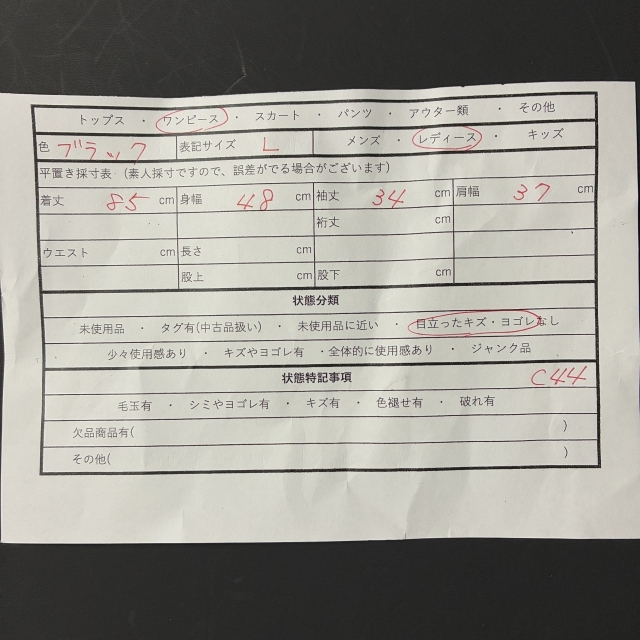 トップス ・ ワンピース ・ スカート ・ パンツ ・ アウター類 ・ その他
色 ブラック 表記サイズ L メンズ ・ レディース ・ キッズ
平置き採寸表（素人採寸ですので、誤差がでる場合がございます）
着丈 85 cm 身幅 48 cm 袖丈 34 cm 肩幅 37 cm
裄丈 cm
ウエスト cm 長さ cm
股上 cm 股下 cm
状態分類
未使用品 ・ タグ有(中古品扱い) ・ 未使用品に近い ・ 目立ったキズ・ヨゴレなし
少々使用感あり ・ キズやヨゴレ有 ・全体的に使用感あり ・ ジャンク品
状態特記事項 C44
毛玉有 ・ シミやヨゴレ有 ・ キズ有 ・ 色褪せ有 ・ 破れ有
欠品商品有( )
その他( )